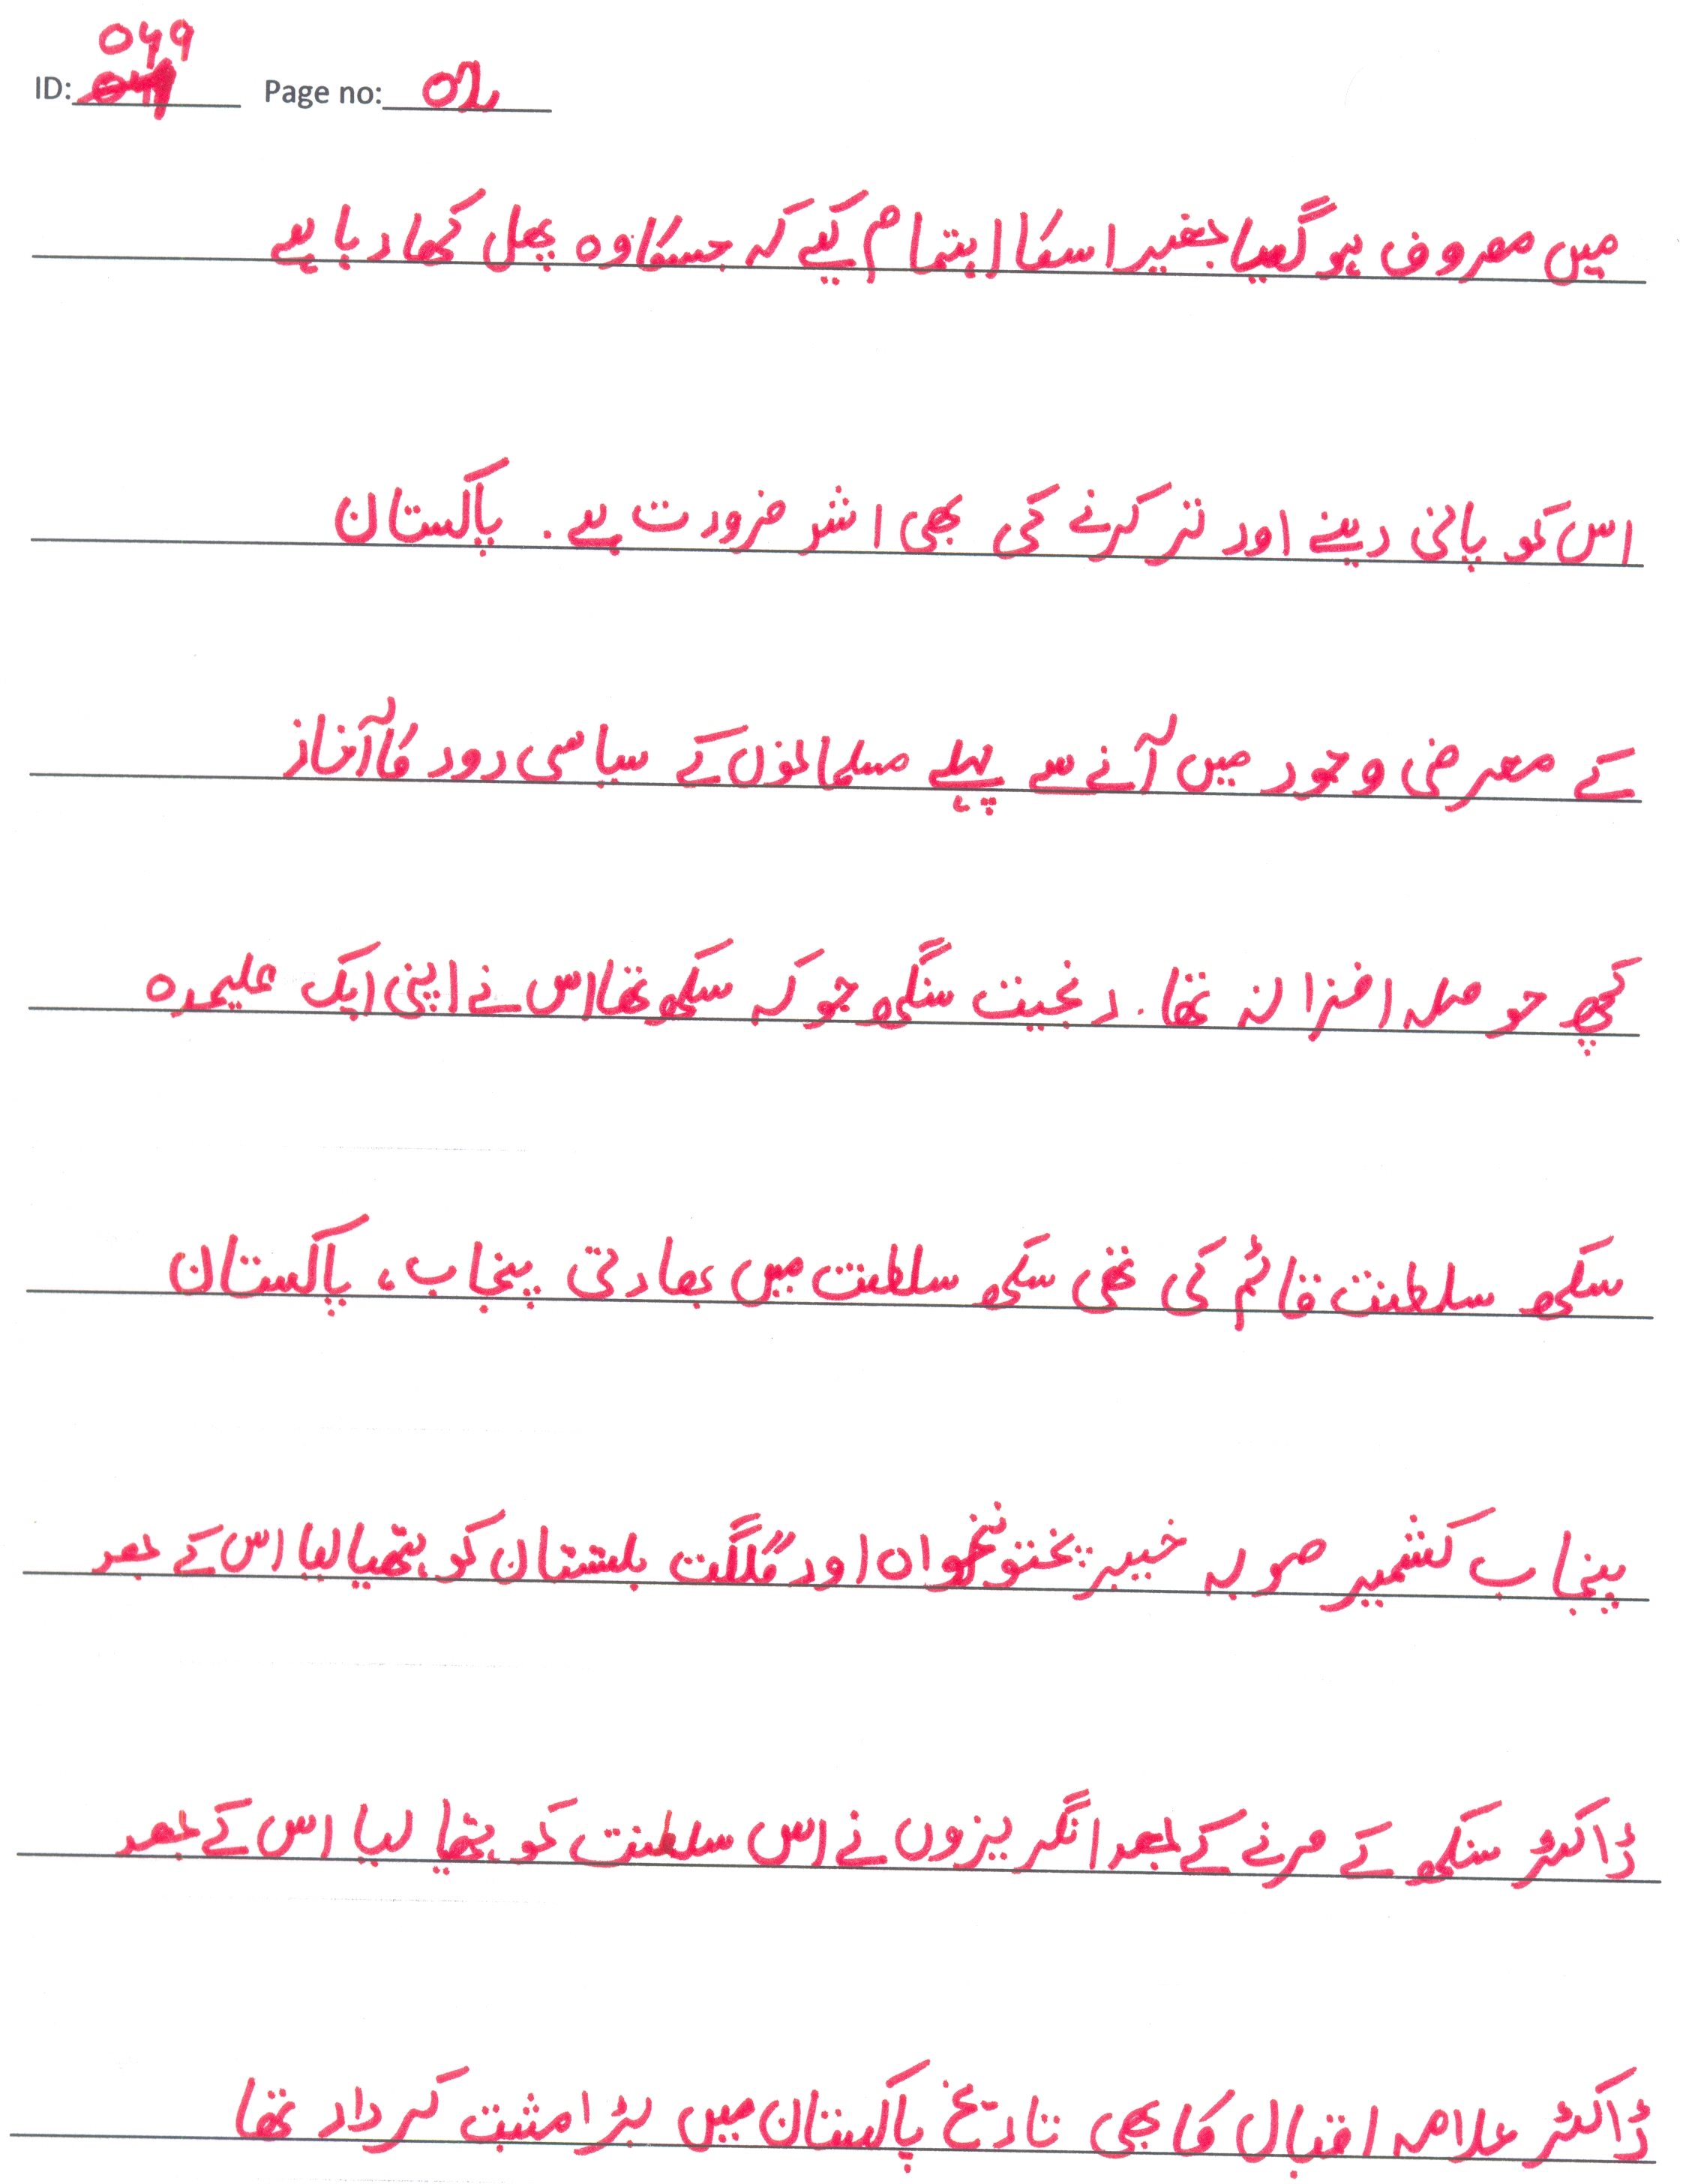 049
ID: 049 Page no: 02
میں مصروف ہو گیا بغیر اسکا اہتمام کیے کہ جسکا وہ پھل کھا رہا ہے
اس کو پانی دینے اور تر کرنے کی بھی اشد ضرورت ہے. پاکستان
کے معرض وجود میں آنے سے پہلے مسلمانوں کے سیاسی دور کا آغاز
کچھ حوصلہ افزا نہ تھا. رنجیت سنگھ جو کہ سکھ تھا اس نے اپنی ایک علیحدہ
سکھ سلطنت قائم کی تھی سکھ سلطنت میں بھارتی پنجاب، پاکستان
پنجاب کشمیر صوبہ خیبر پختونخوان اور گلگت بلتستان کو ہتھیا لیا اس کے بعد
ڈاکٹر سنگھ کے مرنے کے بعد انگریزوں نے اس سلطنت کو ہتھیا لیا اس کے بعد
ڈاکٹر علامہ اقبال کا بھی تاریخ پاکستان میں بڑا مثبت کردار تھا